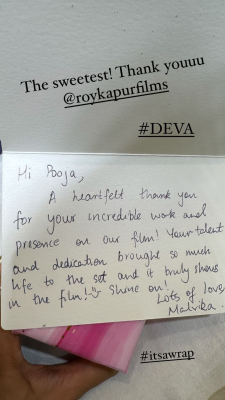 The sweetest! Thank youuu
@roykapurfilms
#DEVA
Hi Pooja,
A heartfelt thank you
for your incredible work and
presence on our film! Your talent
and dedication brought so much
life to the set and it truly shows
in the film! Shine on!
Lots of love
Malvika.
#itsawrap